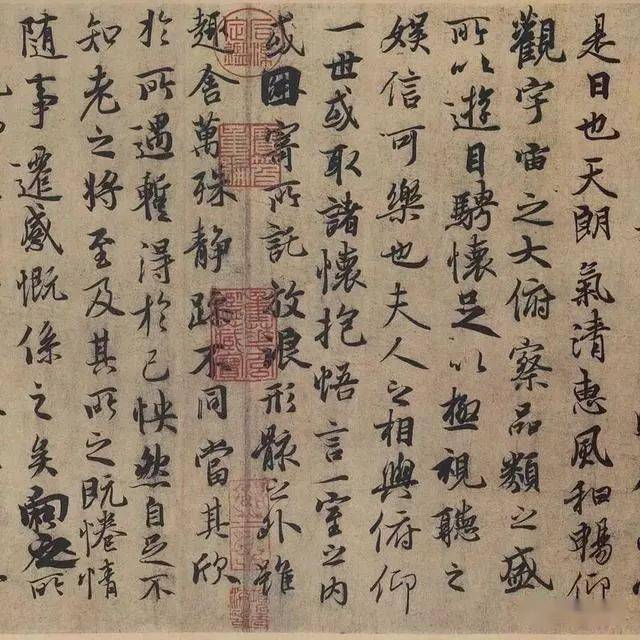 是日也天朗氣清惠風和暢仰
觀宇宙之大俯察品類之盛
所以遊目騁懷足以極視聽之
娛信可樂也夫人之相與俯仰
一世或取諸懷抱悟言一室之內
或因寄所託放浪形骸之外雖
趣舍萬殊静躁不同當其欣
於所遇暫得於己怏然自足不
知老之將至及其所之既惓情
隨事遷感慨係之矣向之所